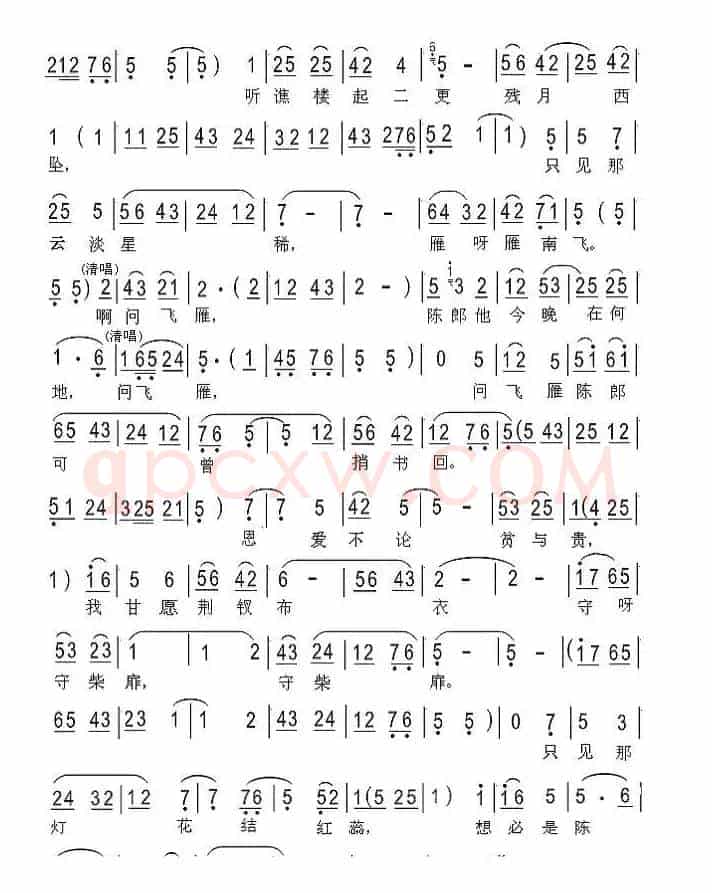 212 76 | 5 5 | 5 ) 1 | 25 25 | 42 4 | 5 - | 56 42 | 25 42 |
听谯楼起二更 残月 西
1 ( 1 | 11 25 | 43 24 | 32 12 | 43 276 | 52 1 | 1 ) 5 | 5 7 |
坠， 只见那
25 5 | 56 43 | 24 12 | 7 - | 7 - | 64 32 | 42 71 | 5 ( 5 |
云淡星 稀， 雁呀雁南飞。
(清唱)
5 5 ) 2 | 43 21 | 2 · ( 2 | 12 43 | 2 - ) | 5 3 2 | 12 53 | 25 25 |
啊问飞雁， 陈郎他今晚在何
(清唱)
1 · 6 | 165 24 | 5 · ( 1 | 45 76 | 5 5 ) | 0 5 | 12 5 | 51 61 |
地， 问飞雁， 问飞雁陈郎
65 43 | 24 12 | 76 5 | 5 12 | 56 42 | 12 76 | 5 ( 5 43 25 |
可 曾 捎书回。
qpcxw.COM
51 24 | 325 21 | 5 ) 7 | 7 5 | 42 5 | 5 - | 53 25 | 1 ( 4 25 |
恩爱不论 贫与贵，
1 ) 16 | 5 6 | 56 42 | 6 - | 56 43 | 2 - | 2 - | 17 65 |
我甘愿荆钗布 衣 守呀
53 23 | 1 | 1 2 | 43 24 | 12 76 | 5 - | 5 - | ( 17 65 |
守柴扉， 守柴 扉。
65 43 | 23 1 | 1 2 | 43 24 | 12 76 | 5 5 ) | 0 7 | 5 3 |
只见那
24 32 | 12 7 | 7 76 | 5 52 | 1 ( 5 25 | 1 ) 1 | 16 5 | 5 · 6 |
灯 花 结 红蕊， 想必是陈